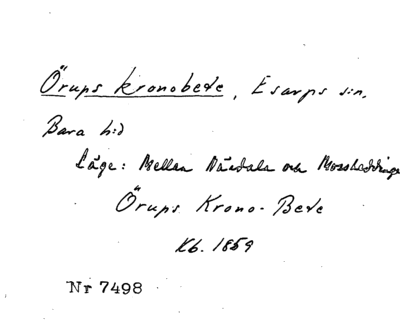 Örups kronobete, Esarps s:n,
Bara h:d
Läge: Mellan Nåvdala och Mossheddinge
Örups Krono-Bete
Kb. 1859
Nr 7498